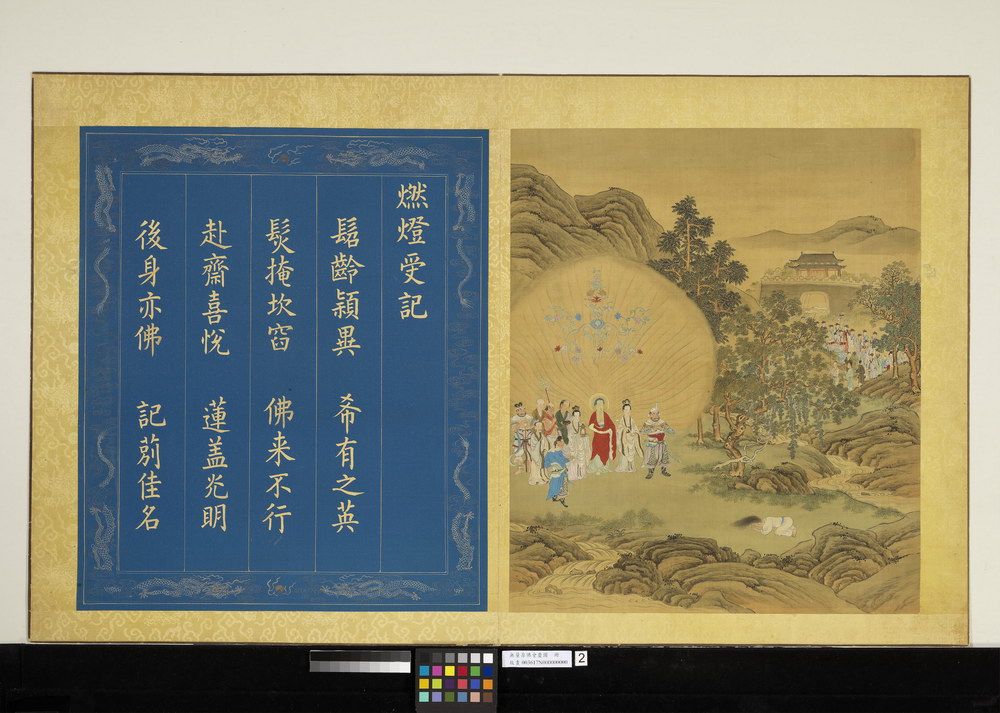 燃燈受記
髫齡頴異 希有之英
髪掩坎窞 佛来不行
赴齋喜悅 蓮盖光明
後身亦佛 記莂佳名
2